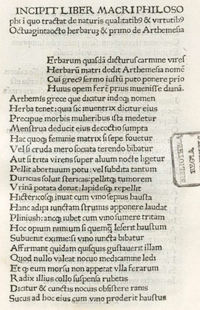 INCIPIT LIBER MACRI PHILOSO
phi ĩ quo tractat de naturis qualitatib9 & virtutib9
Octuagintaocto herbarũ & primo de Arthemesia
Herbarum quasdã dicturus carmine vires
Herbarũ matri dedit Arthemesia nomẽ
Cui greco sermo iustũ puto ponere prio
Huius opem fert prius inuenisse dianã
Arthemis grece que dicitur indeq nomen
Herba tenet: qua sic inuentrix dicitur eius
Precipue morbis muliebribus illa medetur
Menstrua deducit eius decoctio sumpta
Hac quoq femine matrix si sepe fouetur
Vel si cruda mero sociata terendo bibatur
Aut si trita virens super aluum nocte ligetur
Pellit abortiuum potu: vel subdita tantum
Duricias soluit
Vrinã potata lapidesq repellit
Hictericosq iuuat cum vino sepius hausta
Hanc adips iunctam strumis apponere laudat
Plinius: iubet cum vino sumere tritam
Hoc opium nimium si quemq leserit haustum
Subuenit eximie si vino iuncta bibatur
Affirmant quidam quisquis gustauerit illam
Quod nullo valeat nocuo medicamine ledi
Et q eum morsu non appetat vlla ferarum
Radix illius collo suspensa rubetis
Dicitur & cunctis nocuis obsistere ranis
Sucus ad hoc eius cum vino proderit haustus